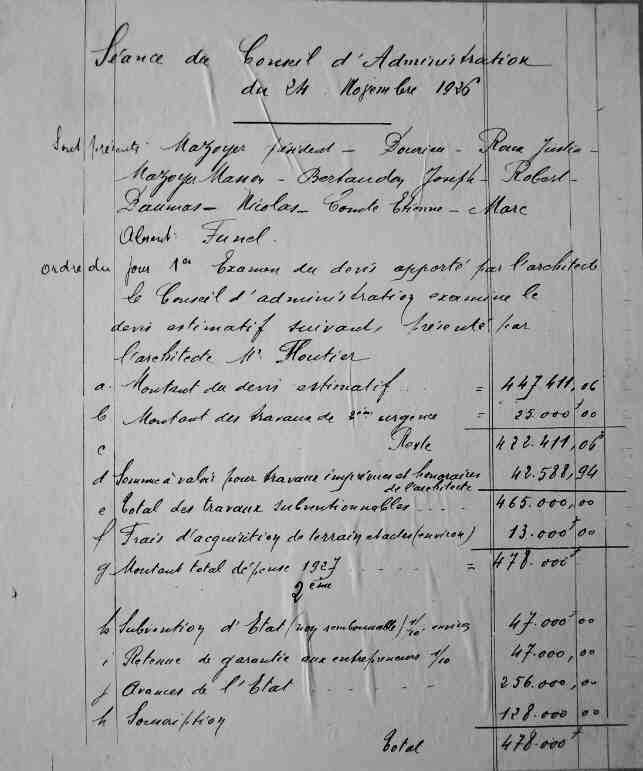 Séance du Conseil d'Administration
du 24 Novembre 1926
Sont présents Mazoyer président - Dourieu - Roux Justin -
Mazoyer Manon - Bertaudon Joseph - Robert -
Daumas - Nicolas - Comte Etienne - Marc
Absent: Funel.
Ordre du jour 1er Examen du devis apporté par l'architecte
Le Conseil d'administration examine le
devis estimatif suivant, présenté par
l'architecte Mr Floutier
a. Montant du devis estimatif . . = 447411,06
b Montant des travaux de 2ème urgence = 25.000f 00
c Reste 422.411,06
d Somme à valoir pour travaux imprévus et honoraires 42.588,94
de l'architecte
e Total des travaux subventionnables . . . . 465.000,00
f Frais d'acquisition de terrain et actes (environ) 13.000f 00
g Montant total dépense 1927 . . . . . = 478.000f
2ème
h Subvention d'Etat (non remboursable) 1/10 environ 47.000f 00
i Retenue de garantie aux entrepreneurs 1/10 47.000,00
j Avances de l'Etat . . . . . 256.000,00
h Souscription 128.000 00
Total 478.000f